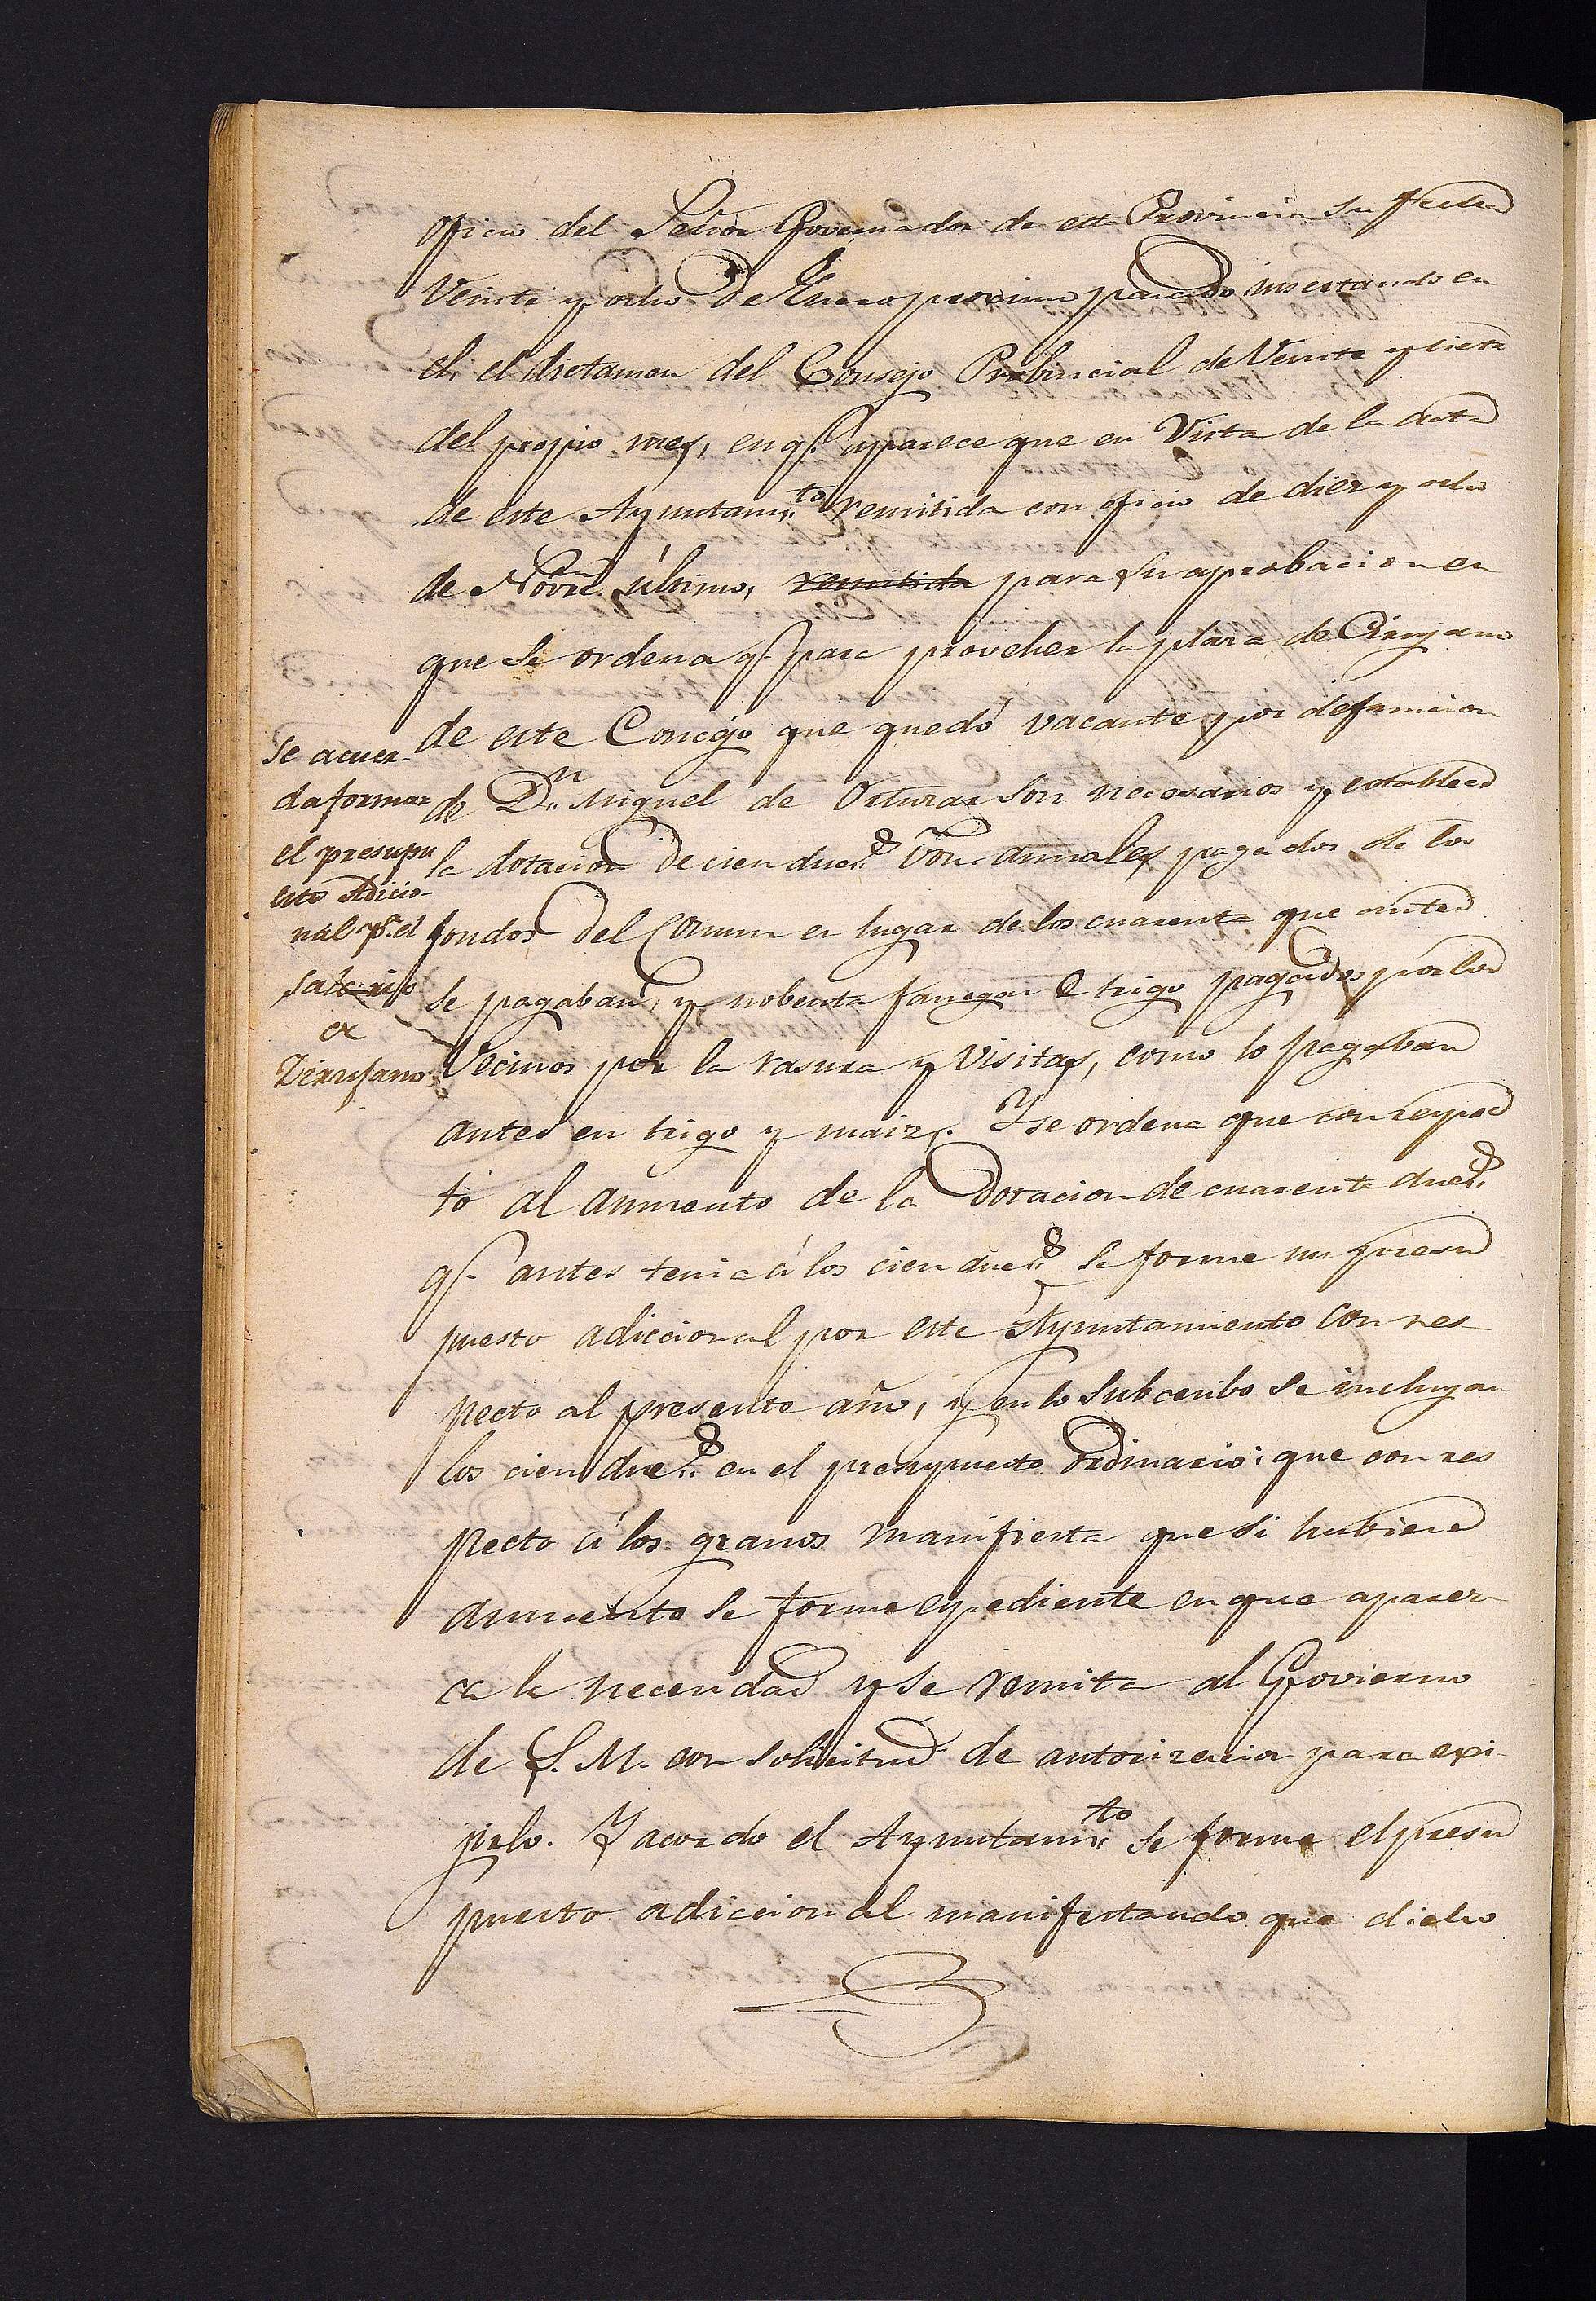 oficio del Señor Governador de esta Provincia su fecha
Veinte y ocho de Enero proximo pasado insertando en
el, el dictamen del Consejo Probincial de Veinte y siete
del propio mes, en q.e aparece que en Vista de la acta
de este Ayuntam.to remitida con oficio de diez y ocho
de Novre. último, remitida para su aprobacion en
que se ordena q.e para proveher la plaza de Cirujano
de este Concejo que quedó vacante por defuncion
de D.n Miguel de Orturar son necesarios y establece
la dotacion de cien duc.s von. annales pagados de los
fondos del Comun en lugar de los cuarenta que antes
se pagaban, y nobenta fanegas de trigo pagados por los
Vecinos por la rasura y Visitas, como lo pagaban
antes en trigo y maiz. Y se ordena que con respec
to al aumento de la dotacion de cuarenta duc.s
q.e antes tenia á los cien duc.s se forme un presu
puesto adiccional por este Ayuntamiento con res
pecto al presente año, y en lo subcesibo se incluyan
los cien duc.s en el presupuesto ordinario: que con res
pecto á los granos manifiesta que si hubiere
aumento se forme espediente en que aparez
ca la necesidad y se remita al Govierno
de S. M. con solicitud de autorizacion para exi
jirlo. Y acordo el Ayuntam.to se forme el presu
puesto adiccional manifestando que dicho
Se acuer-
da formar
el presupu
esto Adicio-
nal p.a el
salario
de
Zirujano